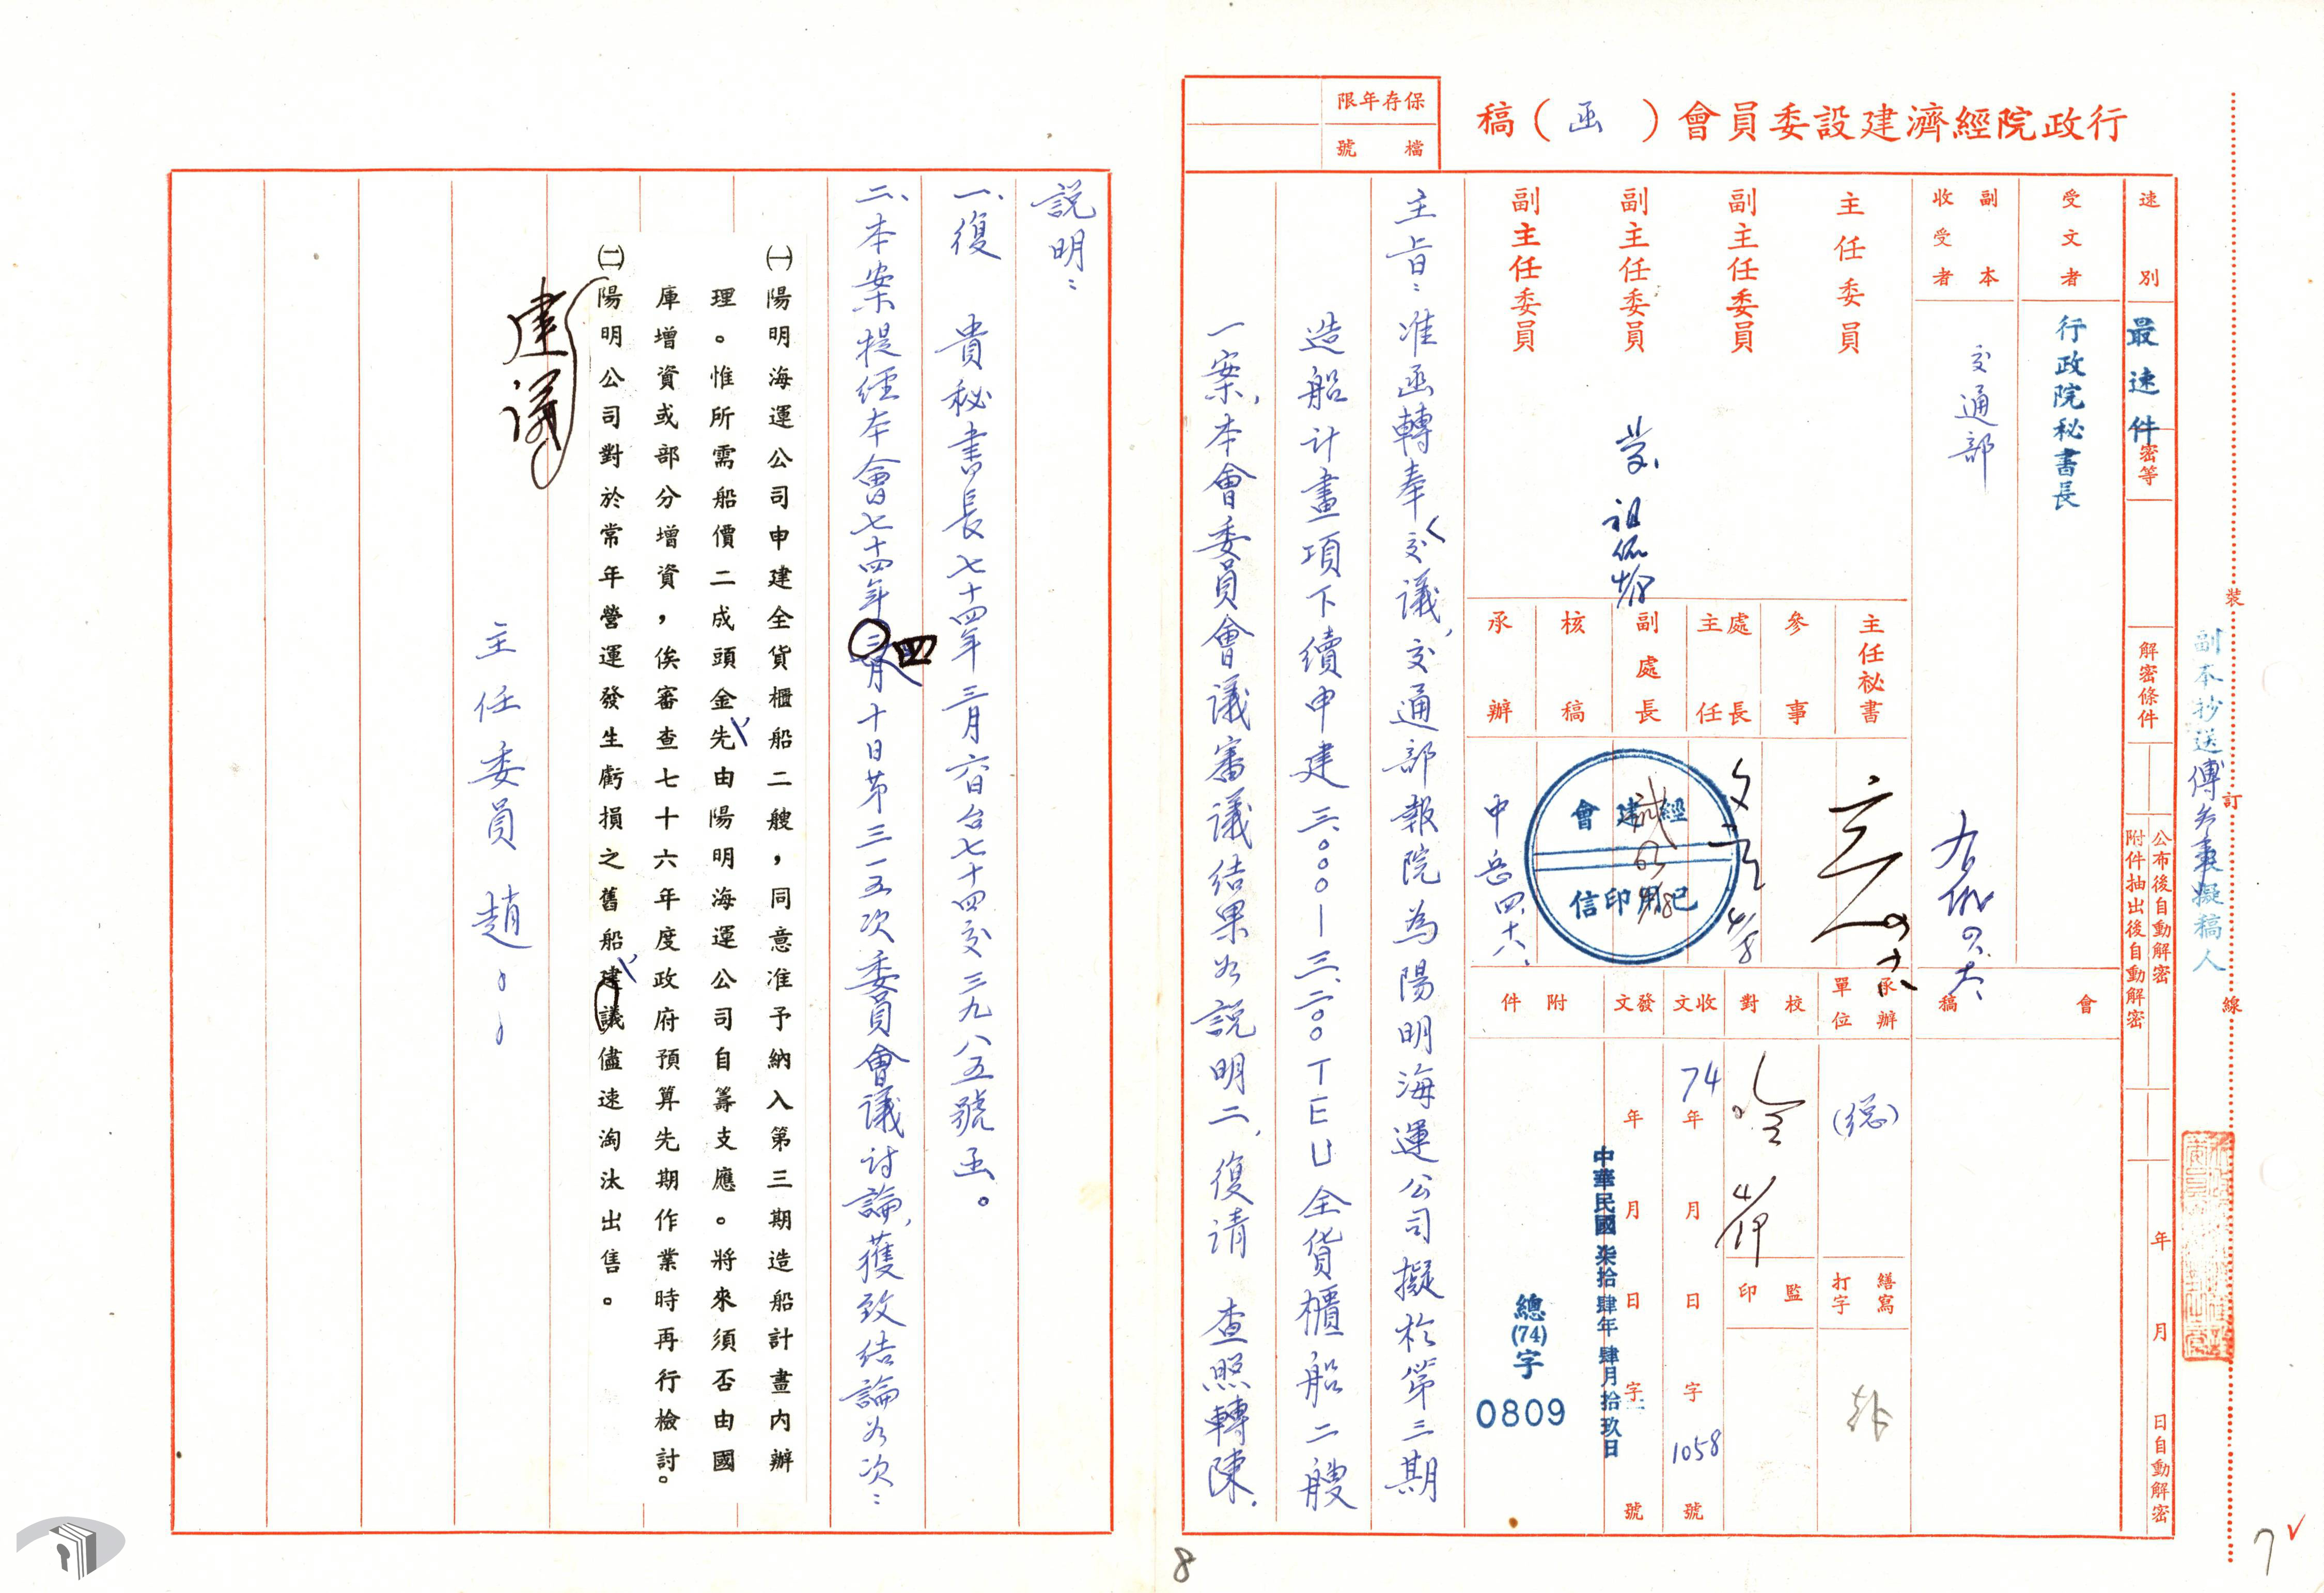 行政院經濟建設委員會（函）稿
保存年限
檔號
速別
最速件
密等
解密條件
公布後自動解密
附件抽出後自動解密
年月日自動解密
受文者
行政院秘書長
副本收受者
交通部
主任委員
副主任委員
副主任委員
副主任委員
主任祕書
參事
處長
主任
副處長
核稿
承辦
會稿
承辦單位
(總)
校對
收文
發文
附件
繕寫
打字
監印
74年月日字1058號
年月日字號
中華民國柒拾肆年肆月拾玖日
總(74)字
0809
經建會
已用印信
裝
訂
線
副本抄送
擬稿人
主旨：准函轉奉交議，交通部報院為陽明海運公司擬於第三期
造船計畫項下續申建三、○○○—三、二○○TEU全貨櫃船二艘
一案，本會委員會議審議結果如說明二，復請 查照轉陳。
說明：
一、復 貴秘書長七十四年三月六日台七十四交三九八五號函。
二、本案提經本會七十四年四月十日第三一五次委員會議討論，獲致結論如次：
㈠陽明海運公司申建全貨櫃船二艘，同意准予納入第三期造船計畫內辦
理。惟所需船價二成頭金先由陽明海運公司自籌支應。將來須否由國
庫增資或部分增資，俟審查七十六年度政府預算先期作業時再行檢討。
㈡陽明公司對於常年營運發生虧損之舊船建議儘速淘汰出售。
建議
主任委員 趙
7
8